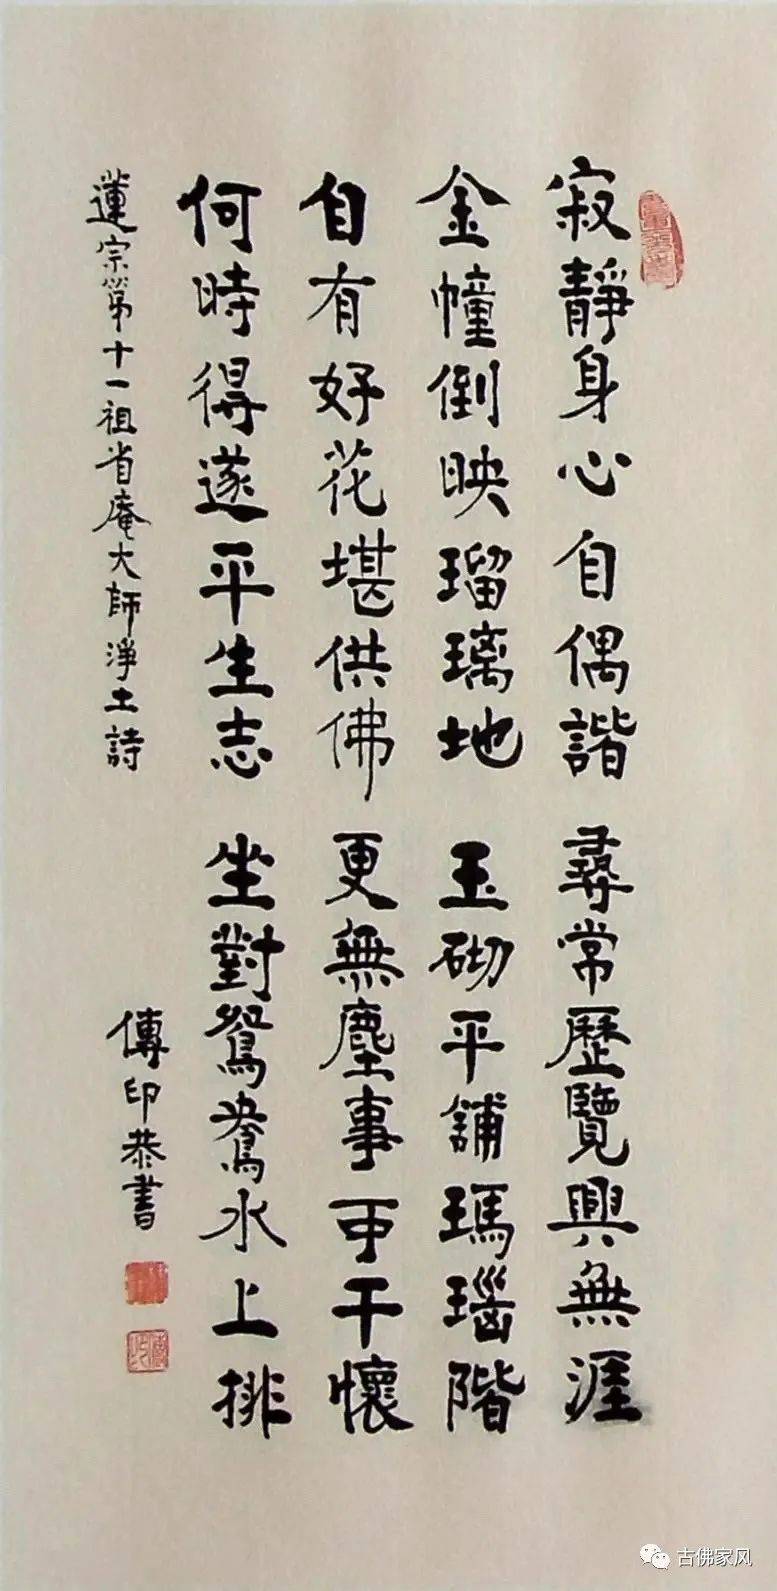 寂靜身心自偶諧 尋常歷覽興無涯
金幢倒映瑠璃地 玉砌平舖瑪瑙階
自有好花堪供佛 更無塵事可干懷
何時得遂平生志 坐對鴛鴦水上排
蓮宗第十一祖省庵大師淨土詩
傳印恭書
古佛家风